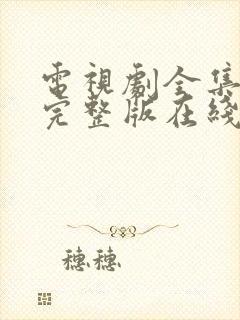 電視劇全集
完整版在綫
穗穗